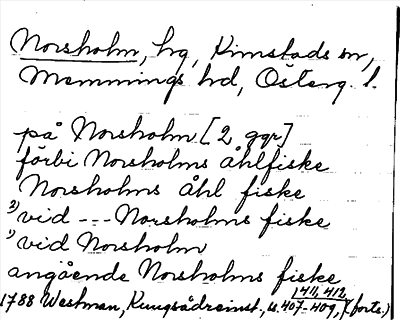 Norsholm, hg, Kimstads sn,
Memmings hd, Österg. l.
på Norsholm [2 ggr]
förbi Norsholms åhlfiske
Norsholms åhl fiske
2) vid --- Norsholms fiske
1) vid Norsholm
angående Norsholms fiske
1411, 412,
1788 Westman, Kungsådreinst., s. 407-409, (forts.)